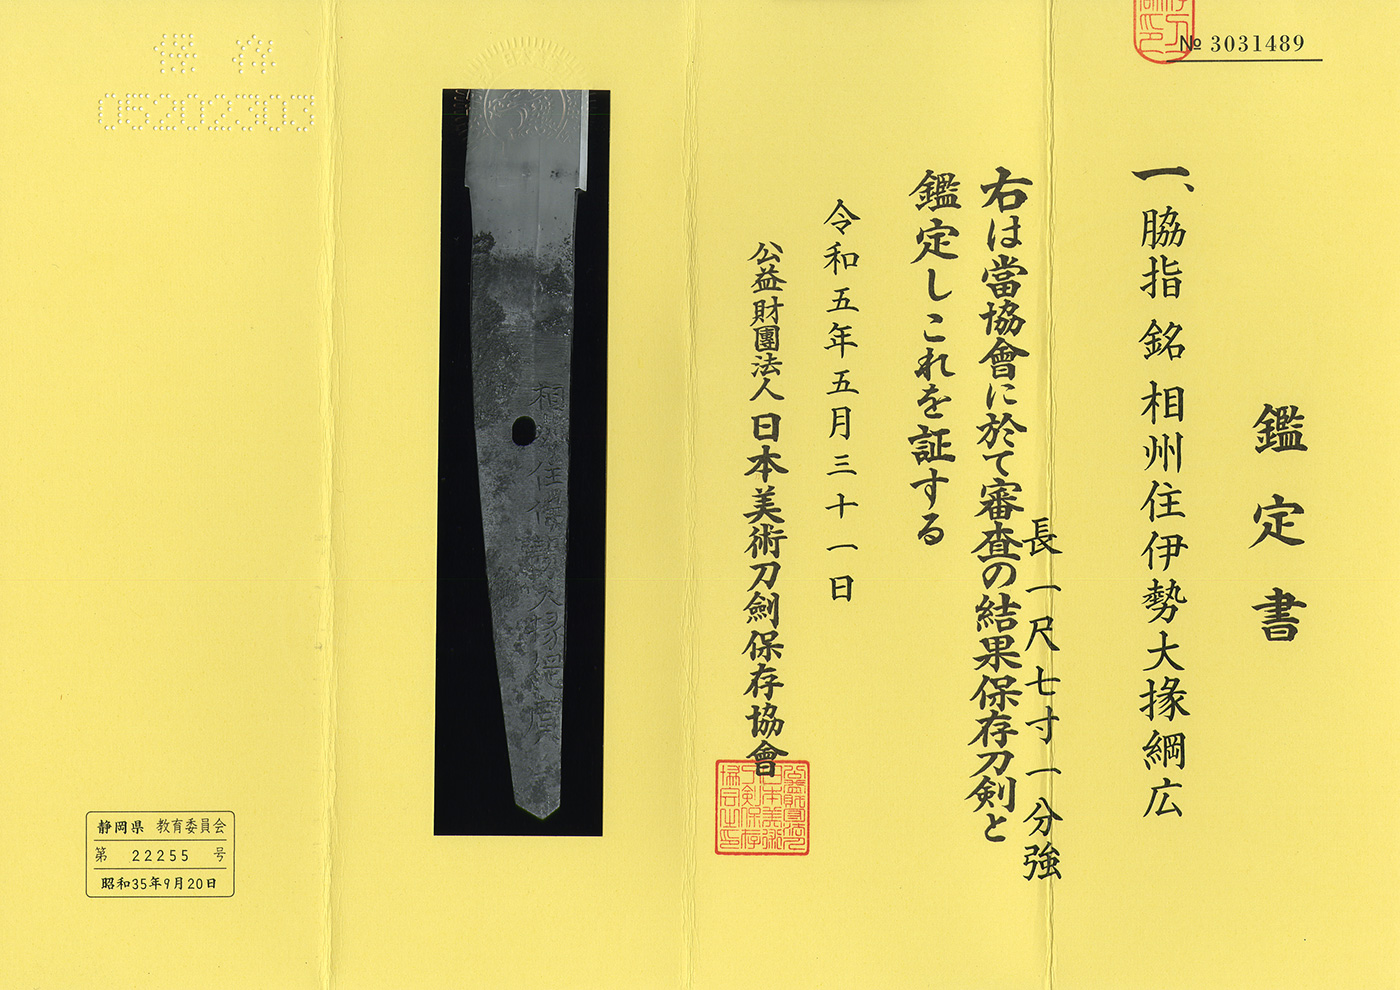 № 3031489
鑑定書
一、脇指 銘 相州住伊勢大掾綱広
長一尺七寸一分強
右は當協會に於て審査の結果保存刀剣と
鑑定しこれを証する
令和五年五月三十一日
公益財團法人 日本美術刀劍保存協會
相州住伊勢大掾綱廣
保存
05202303
静岡県 教育委員会
第 22255 号
昭和35年9月20日